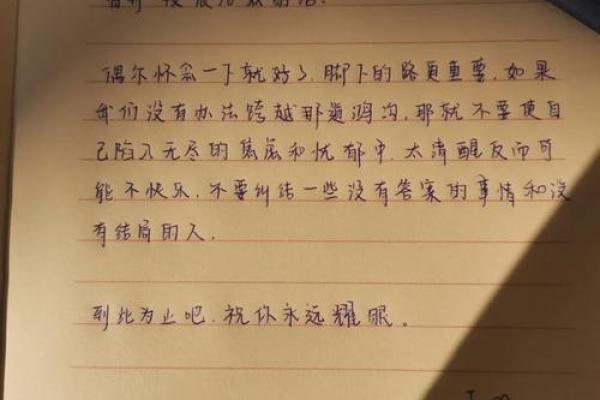 偶尔怀念一下就好了.脚下的路更重要.如果
我们没有办法跨越那道鸿沟.那就不要使自
己陷入无尽的焦虑和忧郁中.太清醒反而可
能不快乐.不要纠结一些没有答案的事情和没
有结局的人.
到此为止吧.祝你永远耀眼。